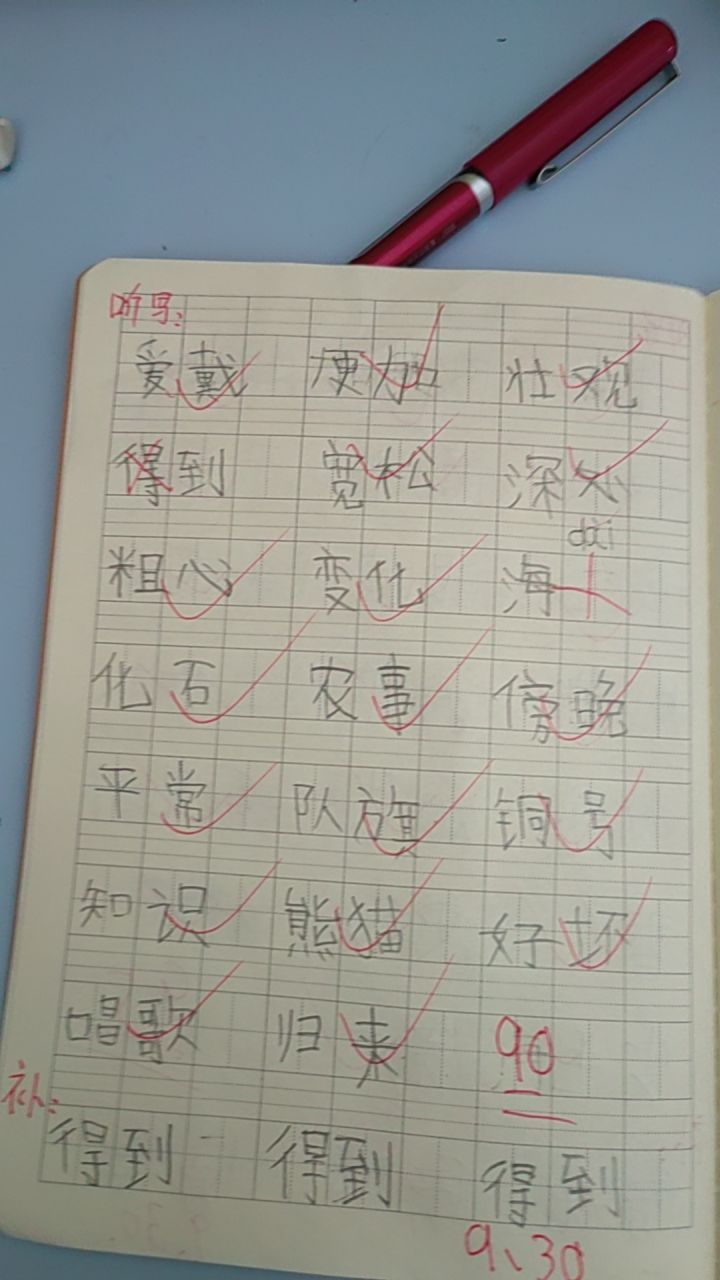 听写：
爱戴 便加 壮观
得到 宽松 深处
dai
粗心 变化 海
化石 农事 傍晚
平常 队旗 铜号
知识 熊猫 好坏
唱歌 归来 90
补：
得到 得到 得到
9、30